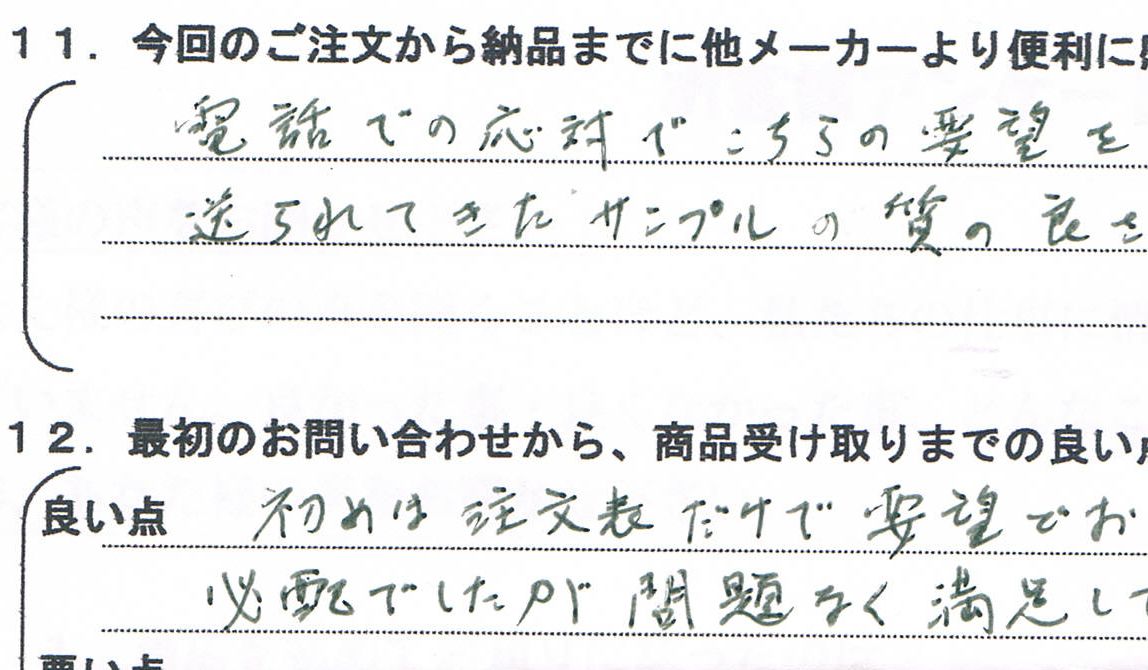 11．今回のご注文から納品までに他メーカーより便利に
電話での応対でこちらの要望を
送られてきたサンプルの質の良さ
12．最初のお問い合わせから、商品受け取りまでの良い
良い点 初めは注文表だけで要望どお
心配でしたが問題なく満足して
悪い点